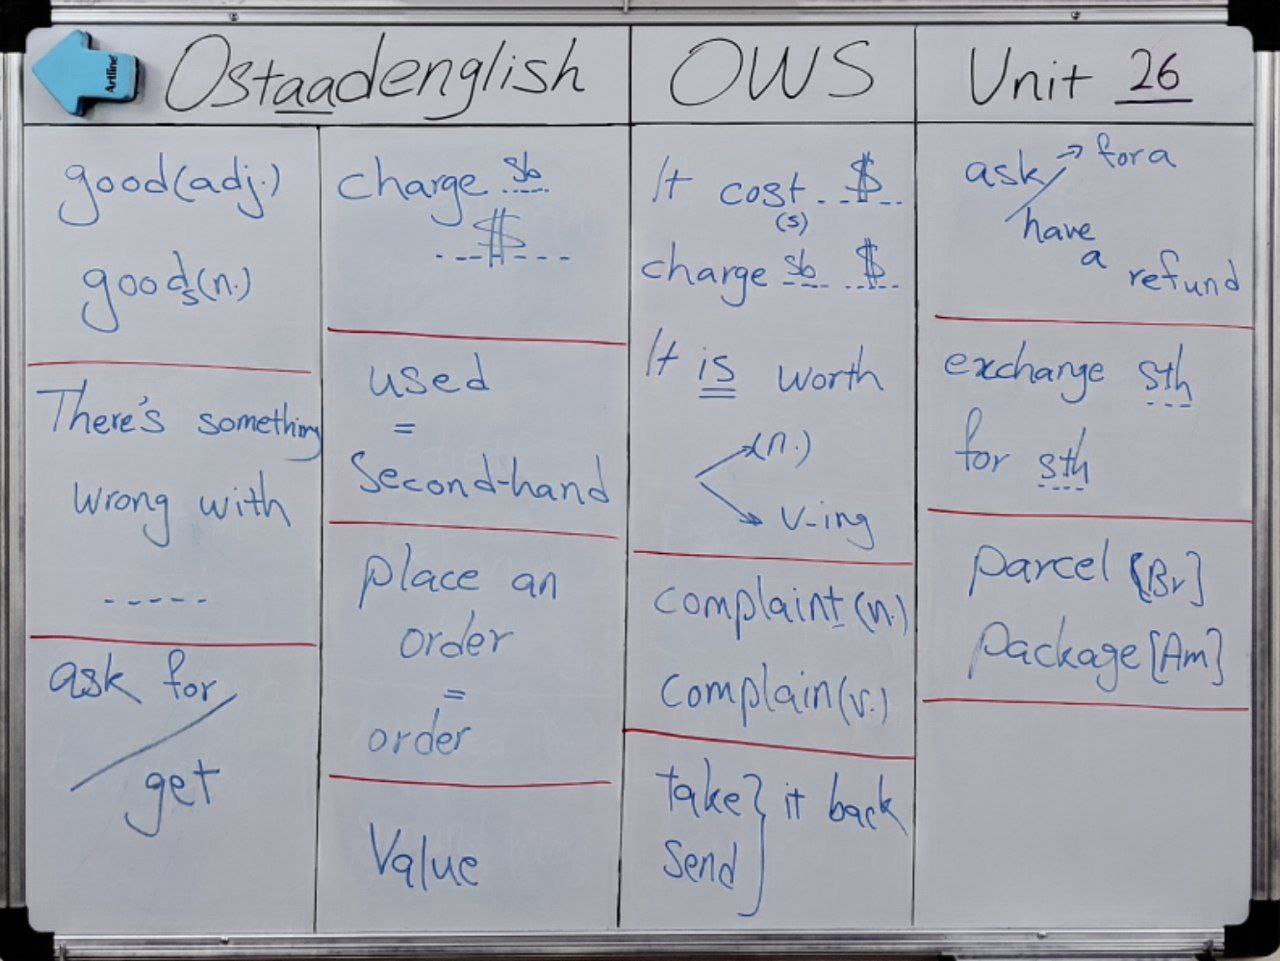 Artline
Ostaadenglish
OWS
Unit 26
good(adj.)
goods(n.)
There's something
wrong with
-----
ask for
get
charge sb
$
used
=
Second-hand
place an
order
=
order
Value
It cost $
(s)
charge sb $
It is worth
(n.)
v-ing
complaint(n.)
complain(v.)
take } it back
send
ask for a
have
a
refund
exchange sth
for sth
parcel [Br]
package [Am]